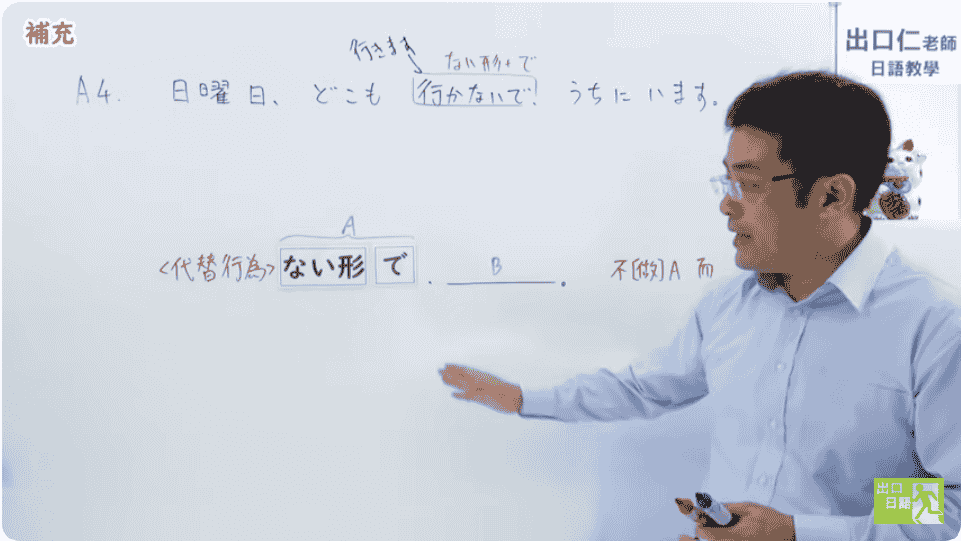 補充
出口仁老師
日語教學
行きます
ない形+で
A4. 日曜日、どこも 行かないで! うちに います。
A
<代替行為> ない形 で . B . 不[做]A 而
出口
日語